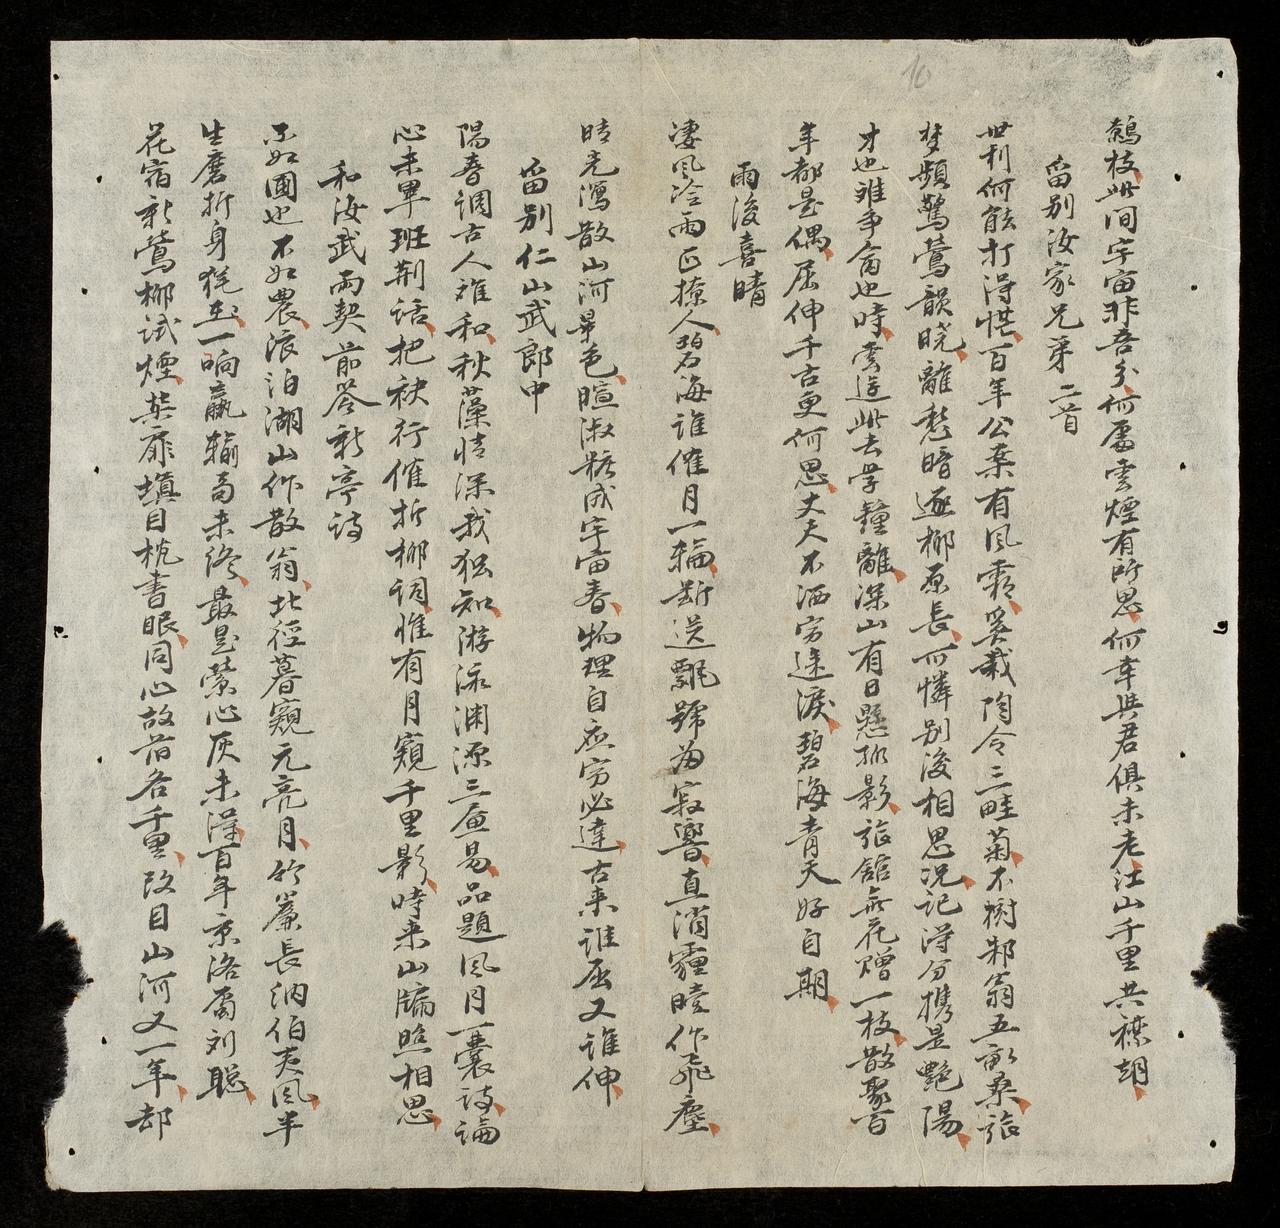 鷦枝此间宇宙非吾分何處雲煙有所思何幸與君俱未老江山千里共襟期
留别汝家兄弟 二首
世利何能打淂慌百年公案有风霜奚栽陶令三畦菊不樹邦翁五畝桑旅
梦頻驚鶯韻晓離愁暗逐柳原長可憐别後相思况記淂分携是艶陽
才也难争命也時雲遥此去学鐘離深山有日懸孤影旅舘無花赠一枝散聚百
年都是偶屈伸千古更何思丈夫不洒穷途淚碧海青天好自期
雨後喜晴
凄风冷雨正撩人碧海谁催月一輪断送飄號為寂響直消霾曀作飛塵
晴光瀉散山河景色暄淑粧成宇宙春物理自应穷必達古来谁屈又谁伸
留别仁山武郎中
陽春调古人难和秋藻情深我独知游泳渊源三盃易品題风月一囊詩論
心未畢班荆話把袂行催折柳词惟有月窺千里影時来山牖照相思
和汝武兩契前答新亭詩
不如圃也不如農浪泊湖山作散翁北徑暮窺元亮月竹簾長納伯夷风半
生磨折身犹在一晌羸輸局未终最是縈心灰未淂百年京洛属刘聪
花宿新鶯柳试煙柴扉填目枕書眠同心故旧各千里改目山河又一年却